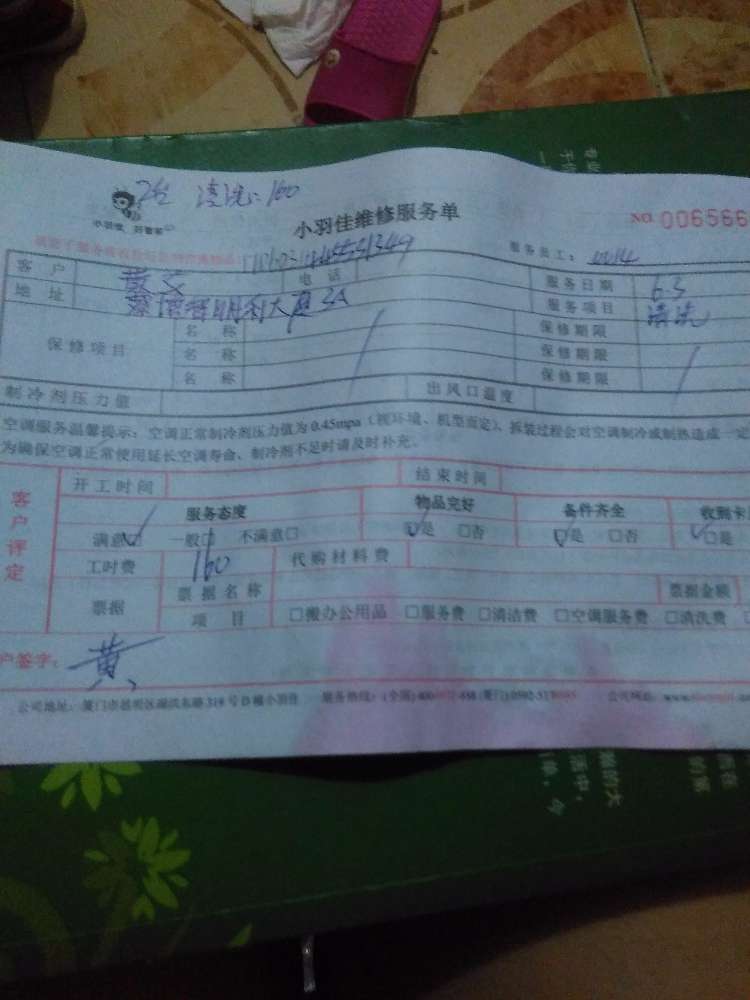 2台 清洗: 160
小羽佳 好管家
小羽佳维修服务单
NO. 006566
服务员工:
客户 黄 电话 服务日期 6.3
地址 明利大厦3A 服务项目 清洗
保修项目 名称 保修期限
名称 保修期限
名称 保修期限
制冷剂压力值 出风口温度
空调服务温馨提示：空调正常制冷剂压力值为0.45mpa（视环境、机型而定），拆装过程会对空调制冷或制热造成一定
为确保空调正常使用延长空调寿命、制冷剂不足时请及时补充。
客户评定
开工时间 结束时间
服务态度 物品完好 备件齐全 收到卡
满意 一般□ 不满意□ □是 □否 □是 □否 □是
工时费 160 代购材料费
票据 票据名称 票据金额
项目 □搬办公用品 □服务费 □清洁费 □空调服务费 □清洗费
户签字: 黄
公司地址: 厦门市 号D幢小羽佳 服务热线: (全国)400 (厦门)0592 公司网址: www.